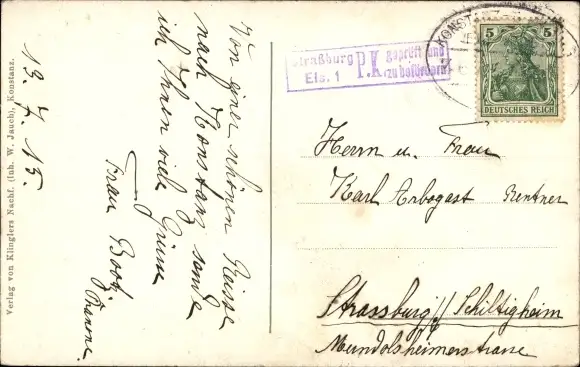 Verlag von Klinglers Nachf. (Inh. W. Jauch), Konstanz.
13. 7. 15.
Von einer schönen Reise
nach Konstanz sende
ich Ihnen viele Grüsse
Frau Boot.
Straßburg
Els. 1
P.K.
geprüft und
zu befördern
KONSTANZ
5 5
DEUTSCHES REICH
Herrn u. Frau
Karl Arbogast Rentner
Strassburg// Schiltigheim
Mundolsheimerstrasse